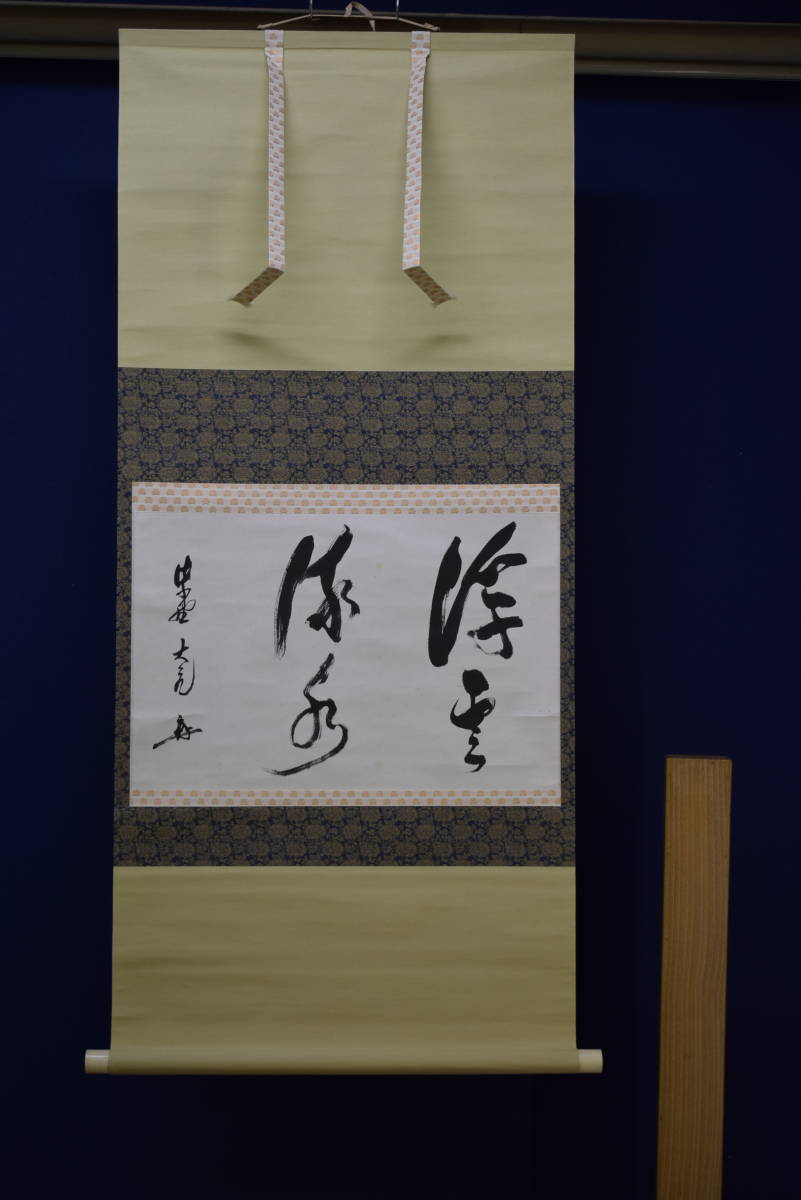 浮雲
流水
紫野 大亀 書